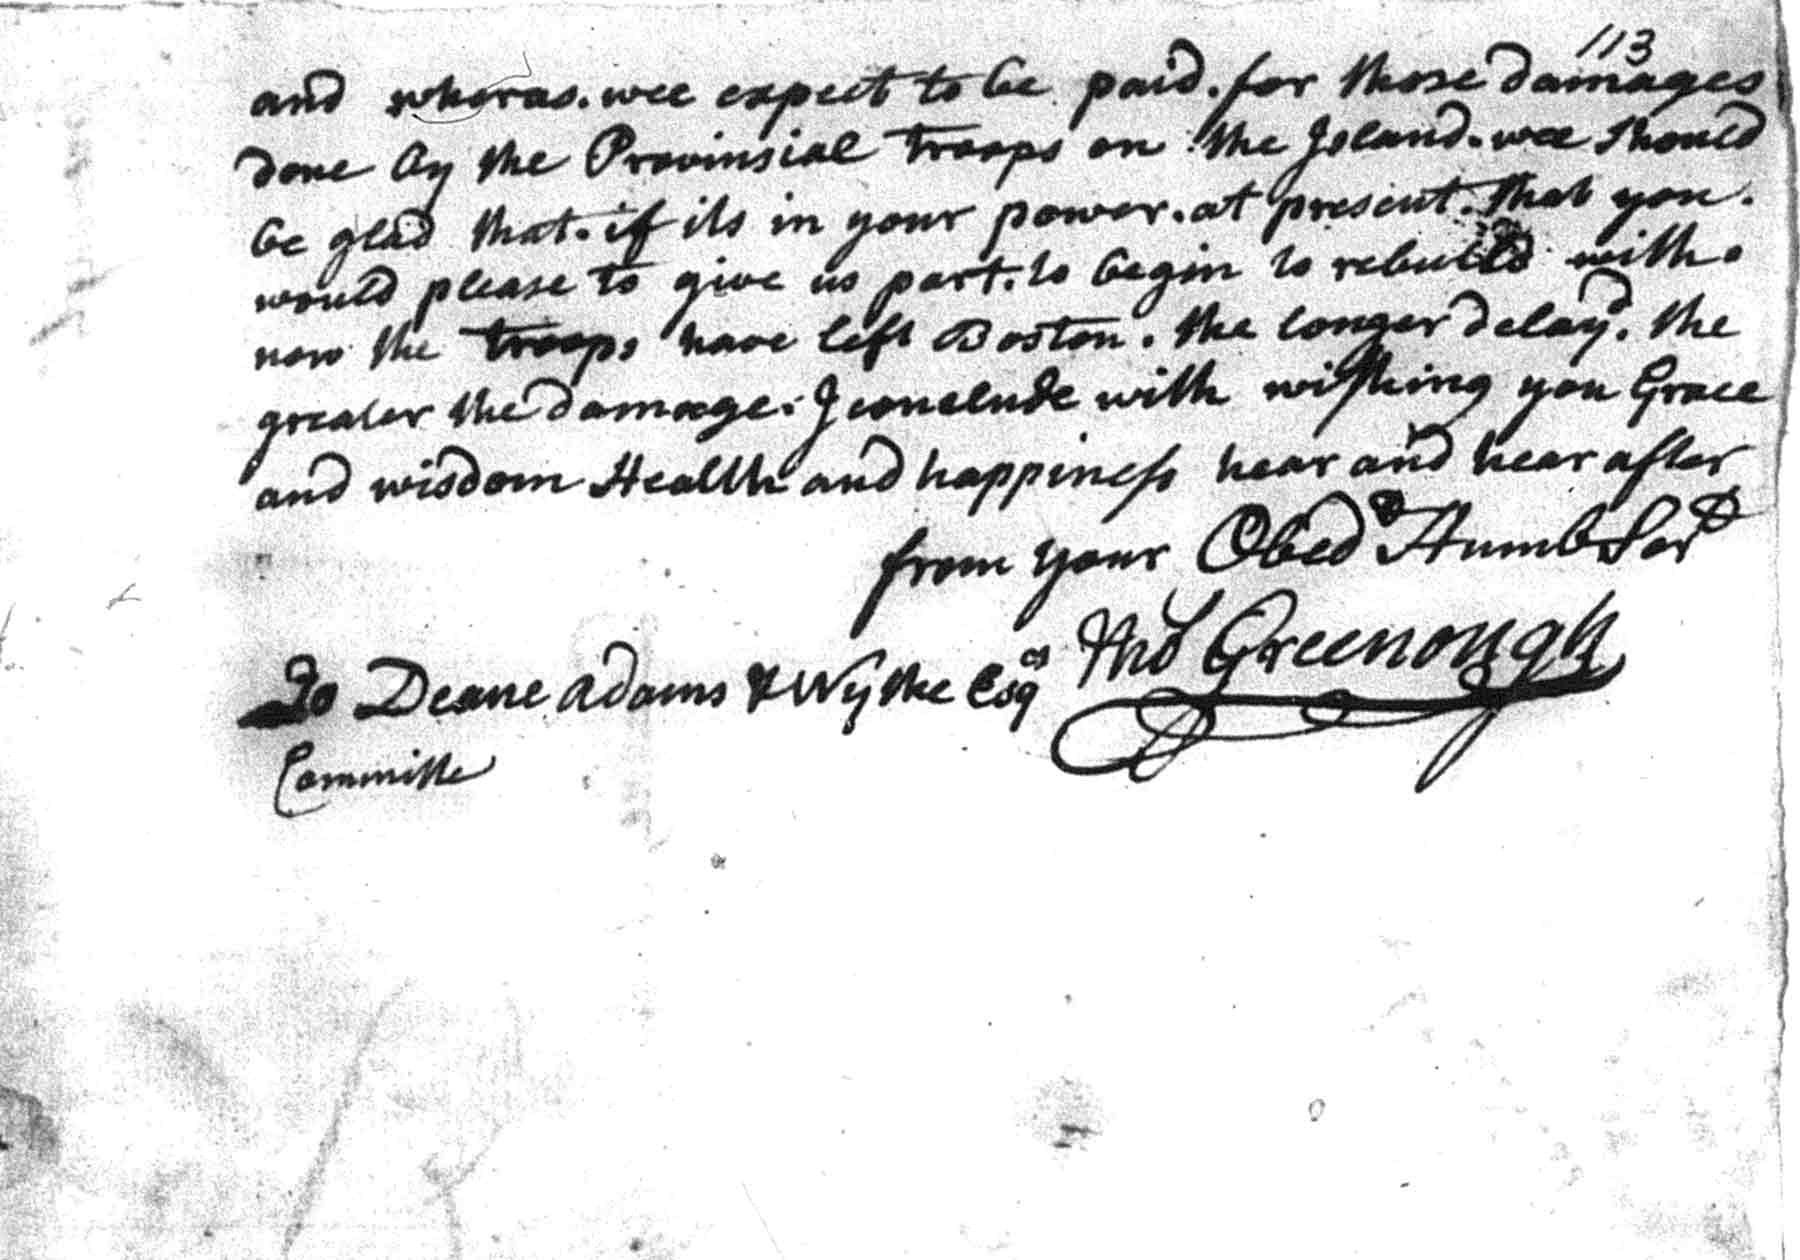 113
and wheras. wee expect to be paid. for those damages
done by the Provinsial troops on the Island. wee should
be glad that. if its in your power. at present. that you.
would please to give us part. to begin to rebuild with.
now the troops have left Boston. the longer delayd. the
greater the damage. I conclude with wishing you Grace
and wisdom Health and happiness hear and hear after
from your Obedt Humb Sert
To Deane Adams & Wythe Esqrs Thos Greenough
Committe